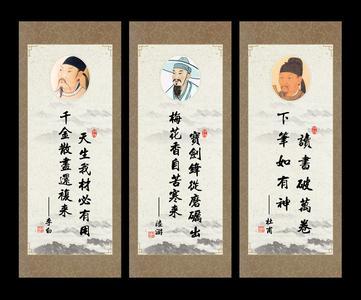 天生我材必有用
千金散盡還複來
——李白
寶劍鋒從磨礪出
梅花香自苦寒來
——陸游
讀書破萬卷
下筆如有神
——杜甫